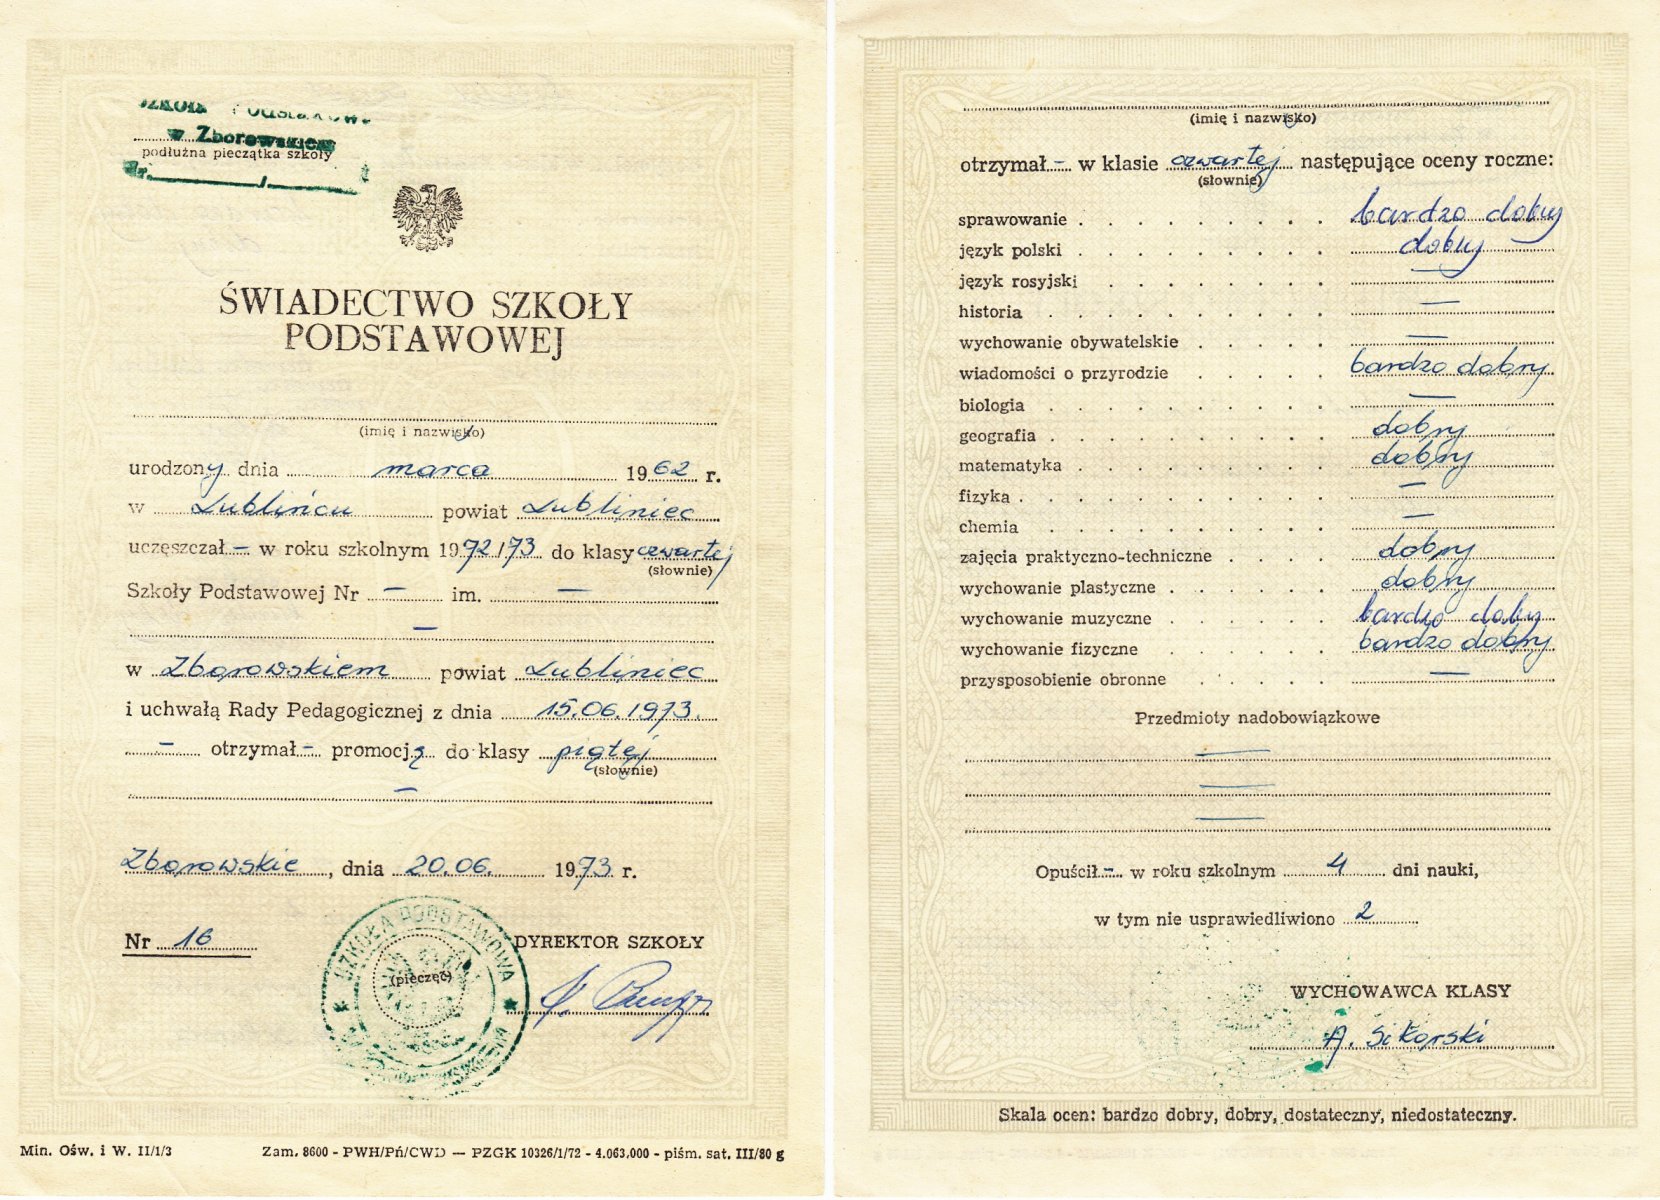 Szkoła Podstawowa
w Zborowskiem
podłużna pieczątka szkoły
ŚWIADECTWO SZKOŁY
PODSTAWOWEJ
(imię i nazwisko)
urodzony dnia marca 1962 r.
w Lublińcu powiat Lubliniec
uczęszczał – w roku szkolnym 1972/73 do klasy czwartej
(słownie)
Szkoły Podstawowej Nr – im. –
–
w Zborowskiem powiat Lubliniec
i uchwałą Rady Pedagogicznej z dnia 15.06.1973.
– otrzymał – promocję do klasy piątej
(słownie)
–
Zborowskie, dnia 20.06. 1973 r.
Nr 16
DYREKTOR SZKOŁY
SZKOŁA PODSTAWOWA
(pieczęć)
Min. Ośw. i W. II/1/3 Zam. 8600 - PWH/Pń/CWD — PZGK 10326/1/72 - 4.063,000 - piśm. sat. III/80 g
(imię i nazwisko)
otrzymał – w klasie czwartej następujące oceny roczne:
(słownie)
sprawowanie bardzo dobry
język polski dobry
język rosyjski –
historia –
wychowanie obywatelskie –
wiadomości o przyrodzie bardzo dobry
biologia –
geografia dobry
matematyka dobry
fizyka –
chemia –
zajęcia praktyczno-techniczne dobry
wychowanie plastyczne dobry
wychowanie muzyczne bardzo dobry
wychowanie fizyczne bardzo dobry
przysposobienie obronne –
Przedmioty nadobowiązkowe
–
–
–
Opuścił – w roku szkolnym 4 dni nauki,
w tym nie usprawiedliwiono 2
WYCHOWAWCA KLASY
A. Sikorski
Skala ocen: bardzo dobry, dobry, dostateczny, niedostateczny.